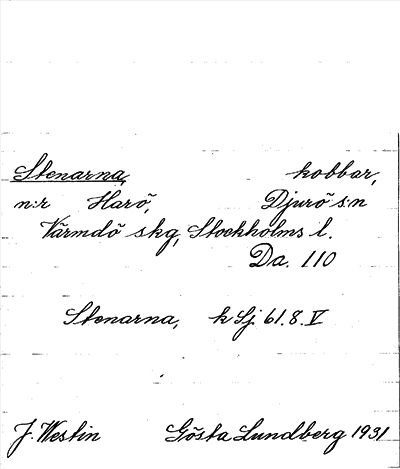 Stenarna, kobbar,
n:r Harö, Djurö s:n
Värmdö skg, Stockholms l.
Da. 110
Stenarna, k Sj. 61.8.V
J. Westin Gösta Lundberg 1931